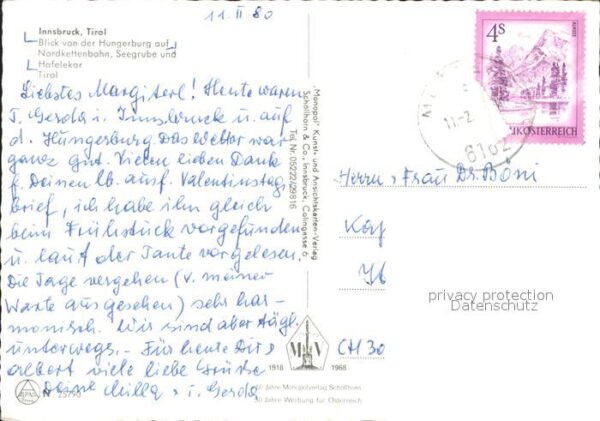 11. II 80
Innsbruck, Tirol
Blick von der Hungerburg auf
Nordkettenbahn, Seegrube und
Hafelekar
Tirol
Liebstes Margiterl! Heute waren
T. Gerda i. Innsbruck u. auf
d. Hungerburg. Das Wetter war
ganz gut. Vielen lieben Dank
f. Deinen lb. ausf. Valentinstags
brief, ich habe ihn gleich
beim Frühstück vorgefunden
u. laut der Tante vorgelesen.
Die Tage vergehen (v. meiner
Warte aus gesehen) sehr har-
monisch. Wir sind aber tägl.
unterwegs. - Für heute Dir,
albert viele liebe Grüsse
Deine Milla i. Gerda
N 25790
"Monopol" Kunst- und Ansichtskarten-Verlag
Schöllhorn & Co., Innsbruck, Colingasse 6
Tel. Nr. 05222/29816
M V
1918 1968
50 Jahre Monopolverlag Schöllhorn
50 Jahre Werbung für Österreich
4S
REPUBLIK ÖSTERREICH
11.-2.
6102
Herrn u Frau Dr. Böni
CH 30
privacy protection
Datenschutz